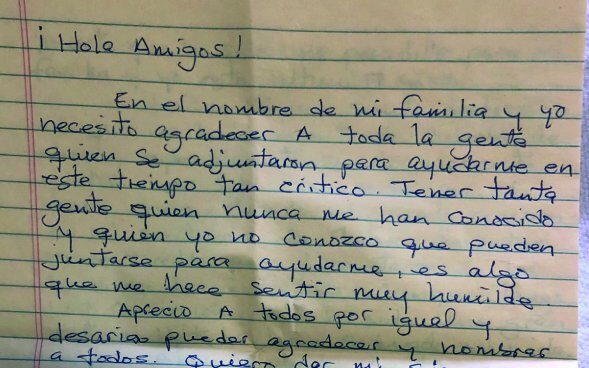 ¡Hola Amigos!
En el nombre de mi familia y yo
necesito agradecer A toda la gente
quien se adjuntaron para ayudarme en
este tiempo tan critico. Tener tanta
gente quien nunca me han conocido
y quien yo no conozco que pueden
juntarse para ayudarme, es algo
que me hace sentir muy humilde.
Aprecio A todos por igual y
desaria poder agradecer y nombrar
a todos. Quiero dar mi